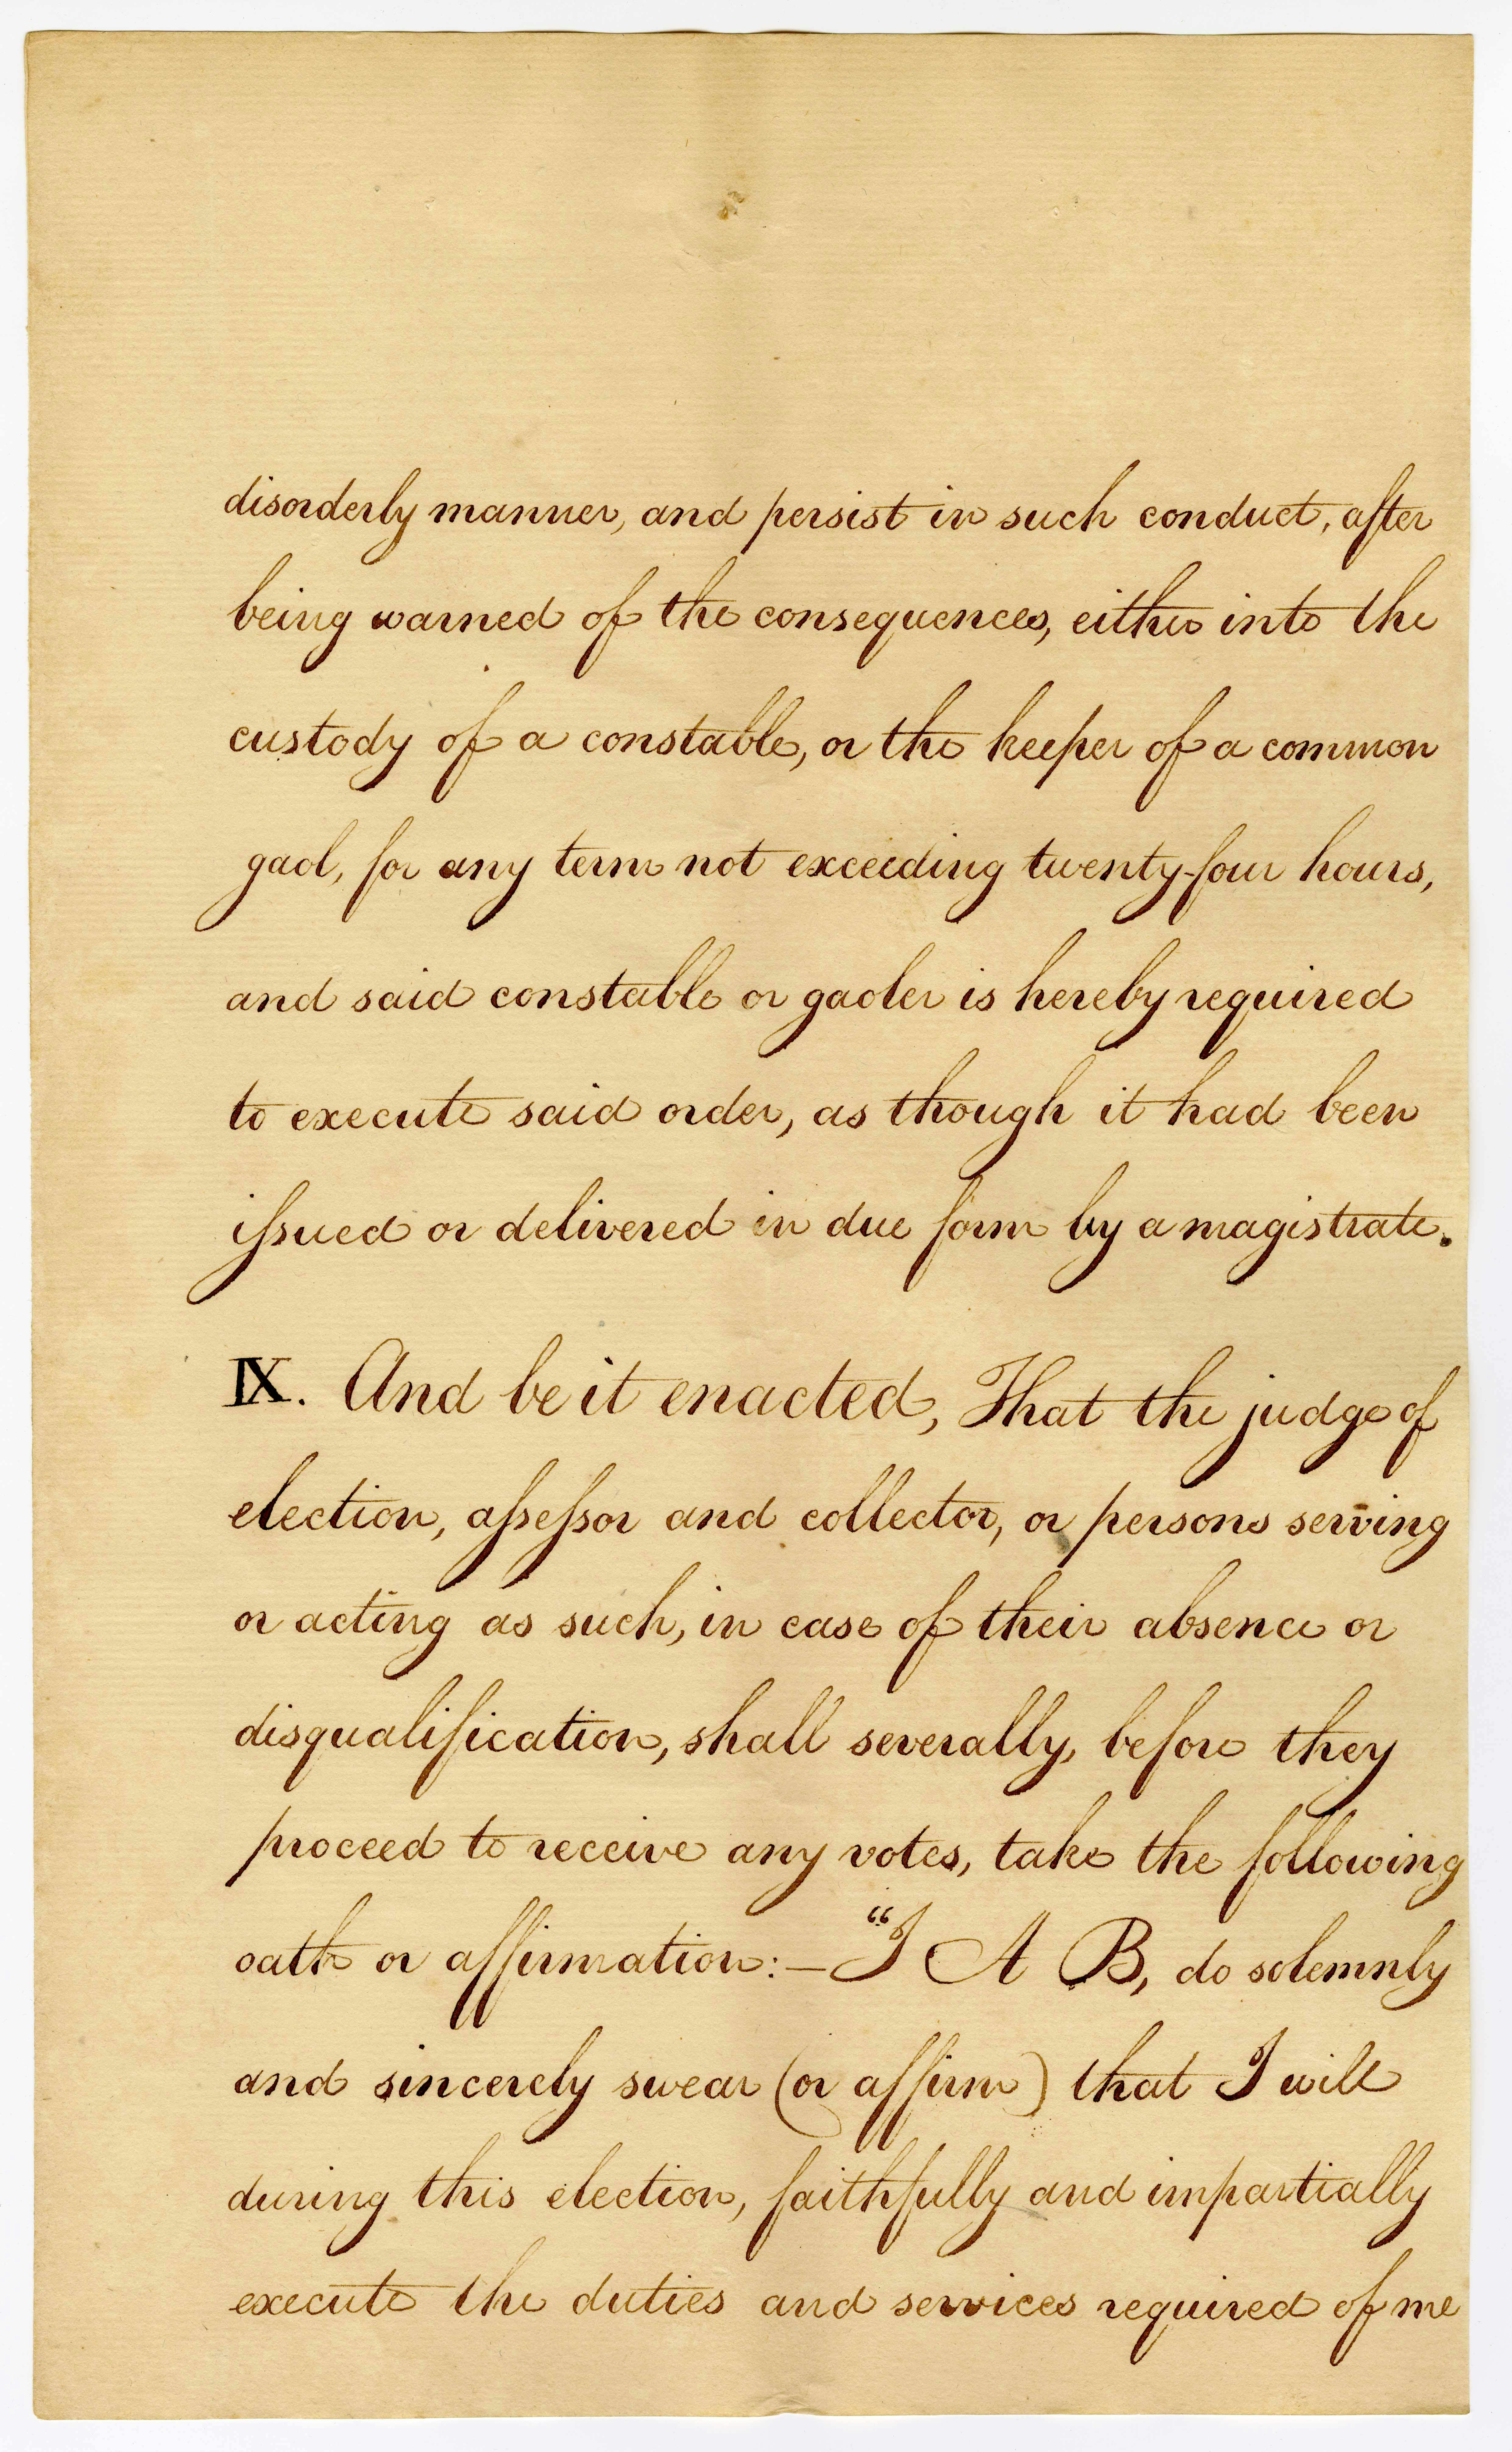 disorderly manner, and persist in such conduct, after
being warned of the consequences, either into the
custody of a constable, or the keeper of a common
gaol, for any term not exceeding twenty-four hours,
and said constable or gaoler is hereby required
to execute said order, as though it had been
iſsued or delivered in due form by a magistrate.
IX. And be it enacted, That the judge of
election, aſseſsor and collector, or persons serving
or acting as such, in case of their absence or
disqualification, shall severally, before they
proceed to receive any votes, take the following
oath or affirmation:— “I A B, do solemnly
and sincerely swear (or affirm) that I will
during this election, faithfully and impartially
execute the duties and services required of me